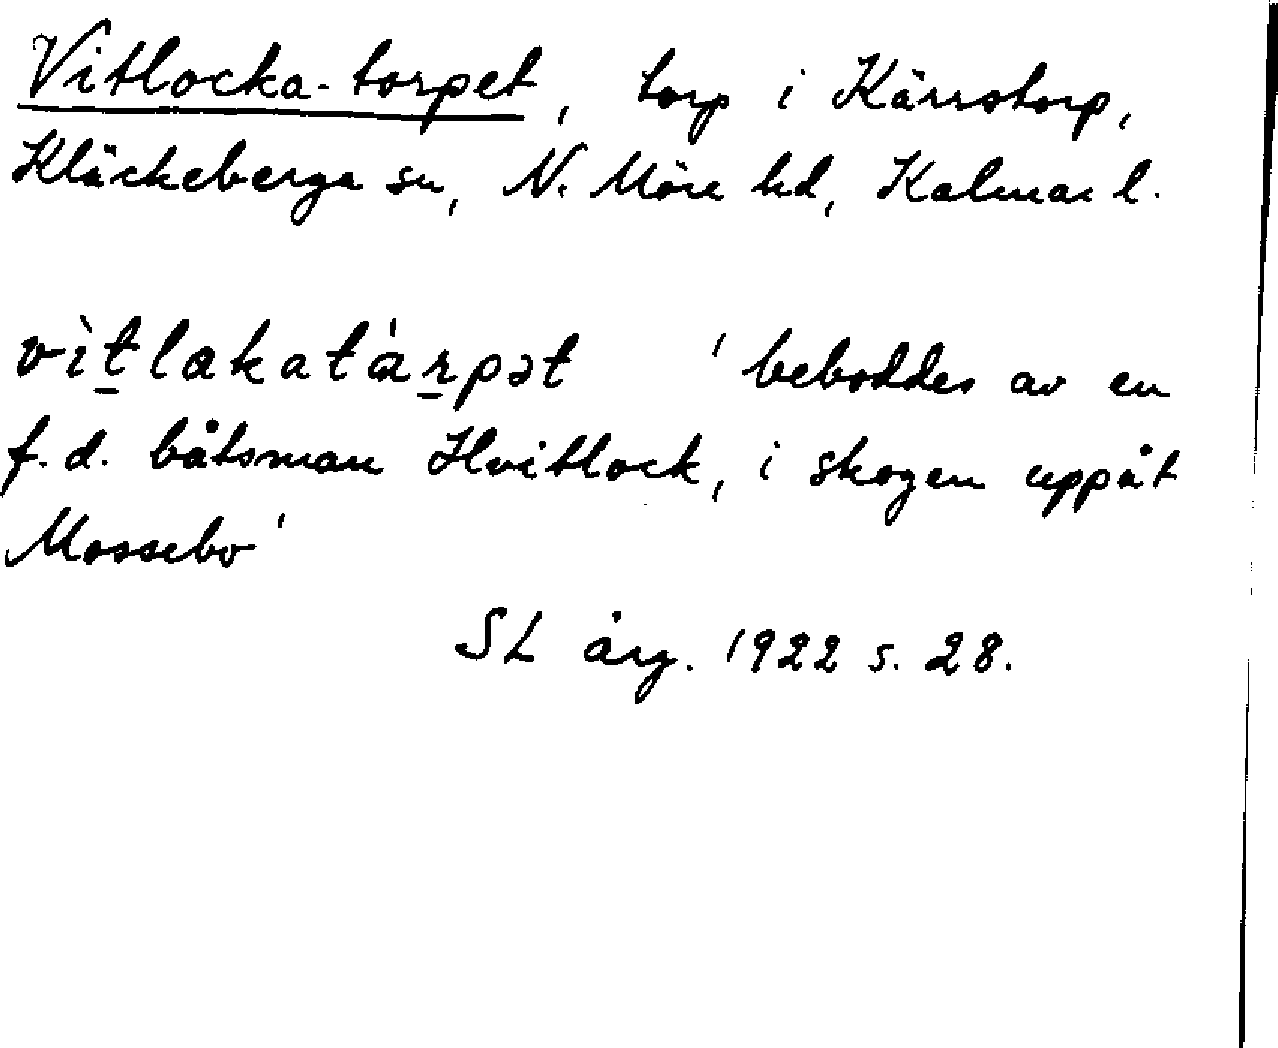 Vitlocka-torpet, torp i Kärrstorp,
Kläckeberga sn, N. Möre hd, Kalmar l.
vìt̠lakatár̠pət 'beboddes av en
f.d. båtsman Hvitlock, i skogen uppåt
Mossebo'
SL årg. 1922 s. 28.